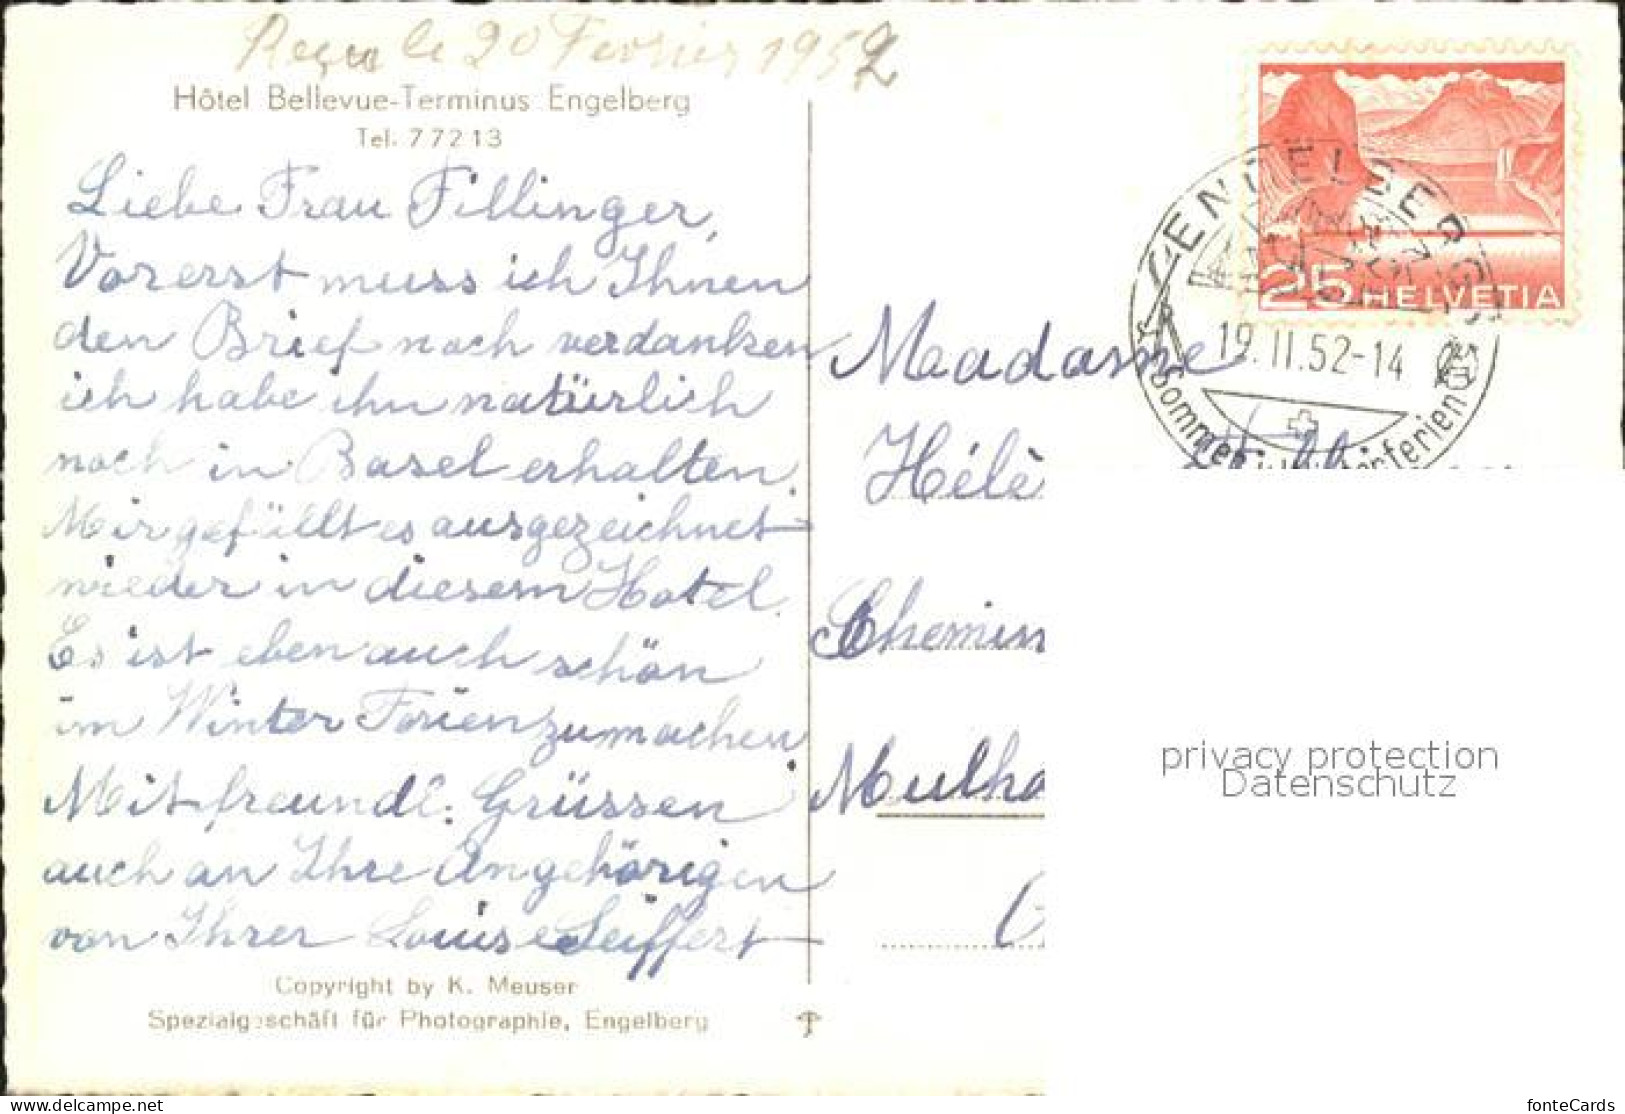 Reçu le 20 Fevrier 1952
Hôtel Bellevue-Terminus Engelberg
Tel. 77213
Liebe Frau Fillinger,
Vorerst muss ich Ihnen
den Brief noch verdanken
ich habe ihn natürlich
noch in Basel erhalten.
Mir gefällt es ausgezeichnet
wieder in diesem Hotel.
Es ist eben auch schön
im Winter Ferien zu machen
Mit freundl. Grüssen
auch an Ihre Angehörigen
von Ihrer Louise Seiffert
Copyright by K. Meuser
Spezialgeschäft für Photographie, Engelberg
25 HELVETIA
ENGELBERG
19.II.52-14
Sommer
ferien
Maadame
Hélè
Chemin
Mulho
privacy protection
Datenschutz
delcampe.net
fonteCards